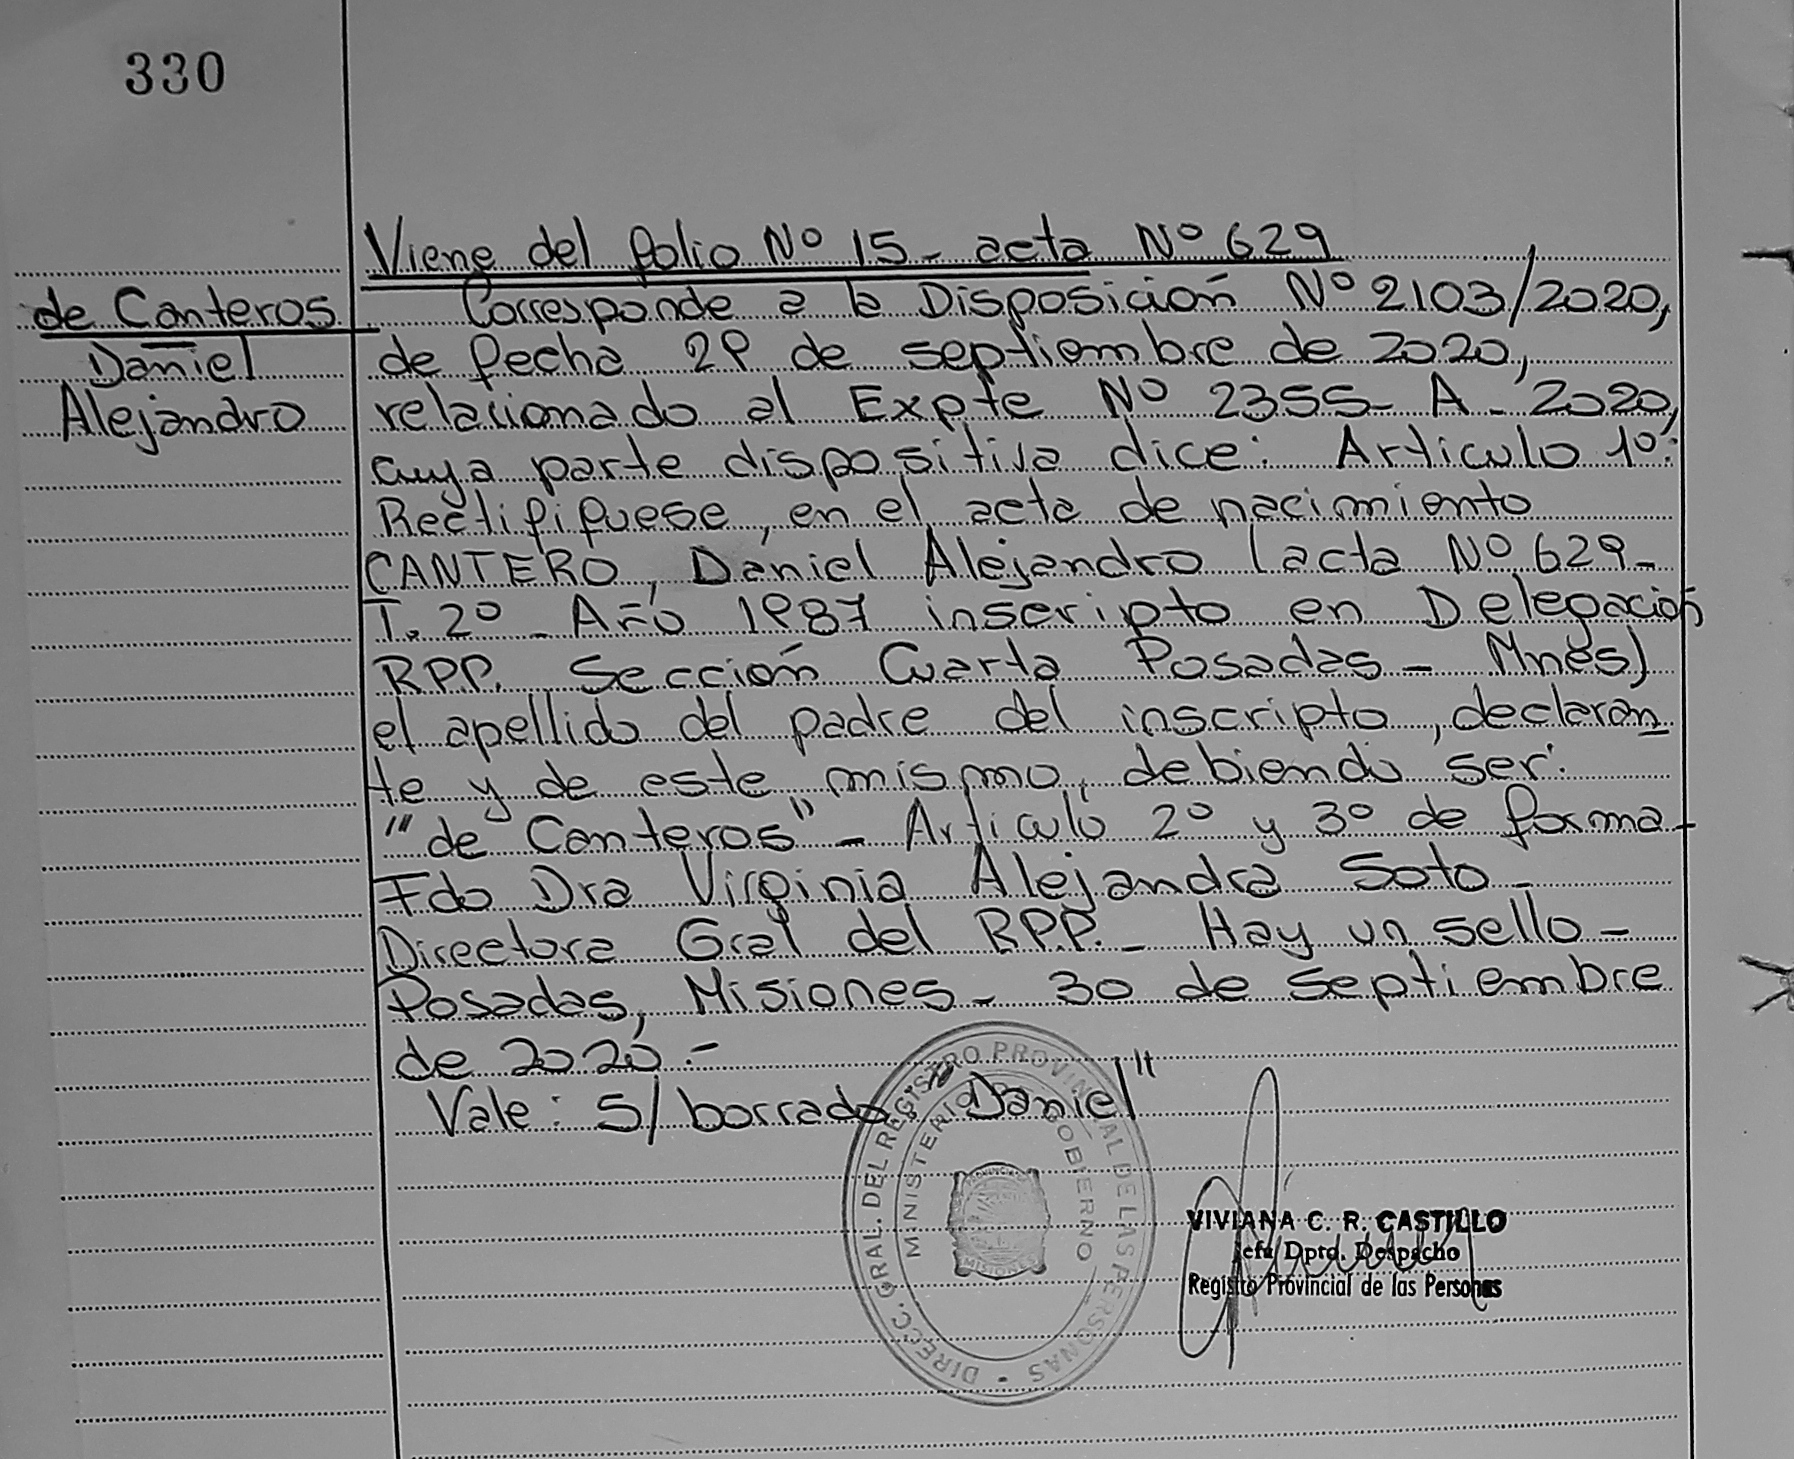 330
Viene del folio Nº 15 - acta Nº 629
de Canteros
Daniel
Alejandro
Corresponde a la Disposición Nº 2103/2020,
de fecha 29 de septiembre de 2020,
relacionado al Expte Nº 2355 - A - 2020,
cuya parte dispositiva dice: Articulo 1º:
Rectififuese, en el acta de nacimiento
CANTERO, Daniel Alejandro (acta Nº 629 -
T. 2º - Año 1987 inscripto en Delegación
RPP. Sección Cuarta Posadas - Mnes)
el apellido del padre del inscripto, declaran
te y de este mismo, debiendo ser:
"de Canteros" - Articulo 2º y 3º de forma -
Fdo Dra Virginia Alejandra Soto -
Directora Gral del RPP. - Hay un sello -
Posadas, Misiones - 30 de septiembre
de 2020.-
Vale: S/ borrado: "Daniel"
DIRECC. GRAL. DEL REGISTRO PROVINCIAL DE LAS PERSONAS
MINISTERIO DE GOBIERNO
MISIONES
VIVIANA C. R. CASTILLO
Jefa Dpto. Despacho
Registro Provincial de las Personas